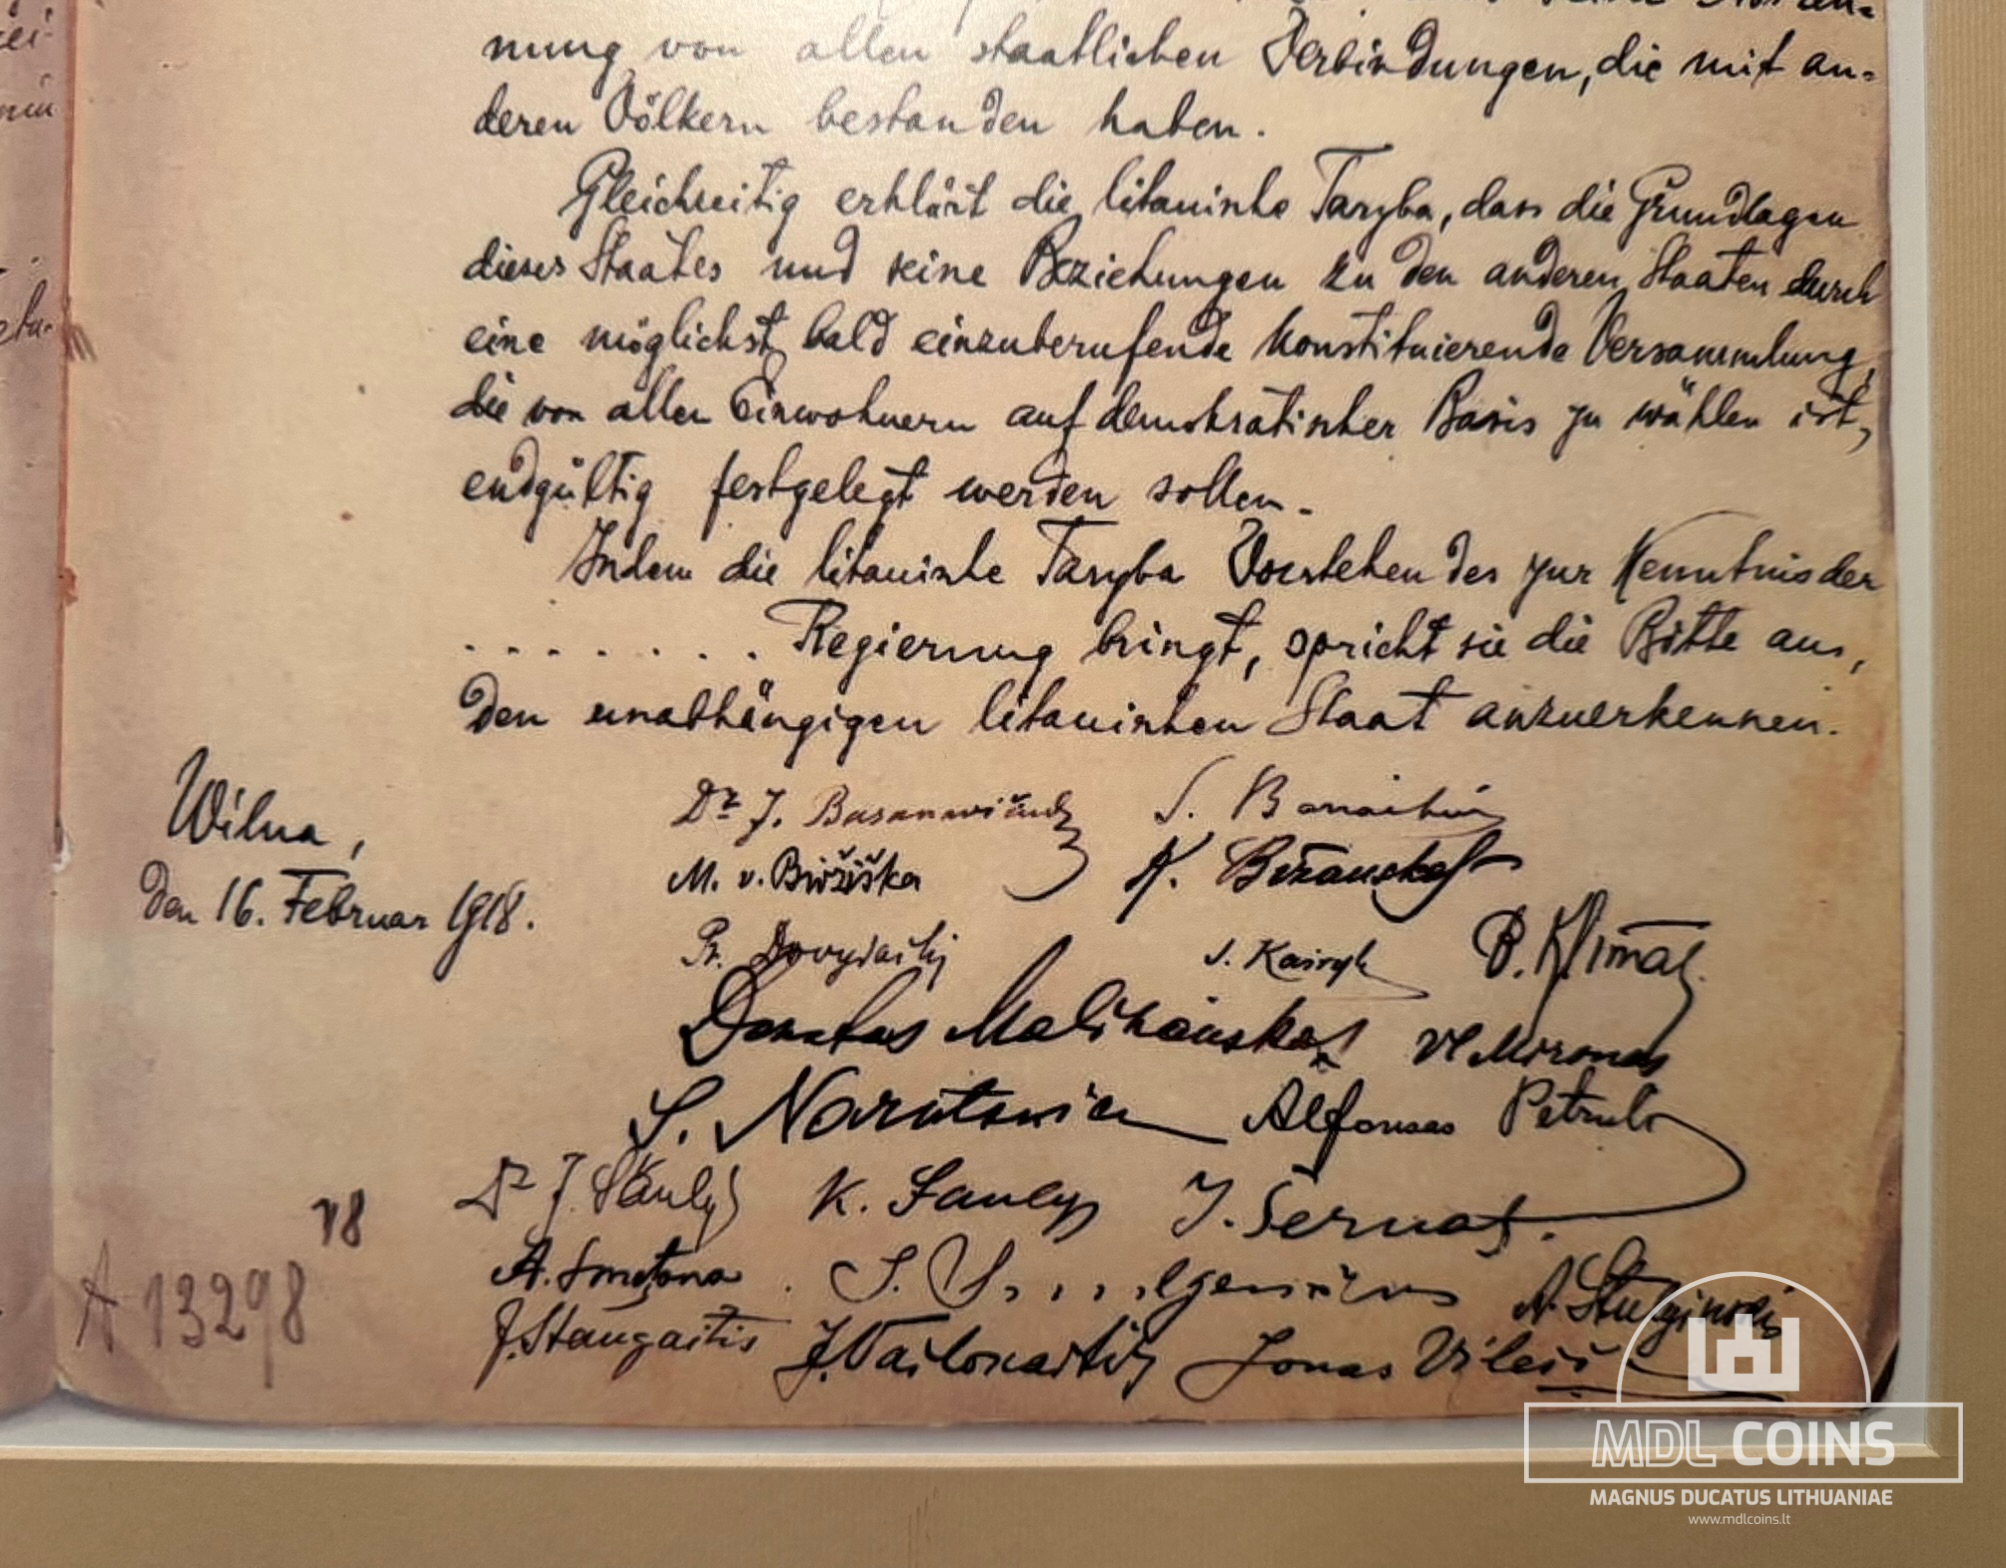 nung von allen staatlichen Verbindungen, die mit an=
deren Völkern bestanden haben.
Gleichzeitig erklärt die litauische Taryba, dass die Grundlagen
dieses Staates und seine Beziehungen zu den anderen Staaten durch
eine möglichst bald einzuberufende konstituierende Versammlung,
die von allen Einwohnern auf demokratischer Basis zu wählen ist,
endgültig festgelegt werden sollen.
Indem die litauische Taryba Vorstehendes zur Kenntnis der
. . . . . . . . Regierung bringt, spricht sie die Bitte aus,
den unabhängigen litauischen Staat anzuerkennen.
Wilna,
den 16. Februar 1918.
Dr J. Basanavičius S.
M. v. Biržiška K. Bizauskas
Pr. Dovydaitis S. Kairys P. Klimas
Donatas Malinauskas Vl Mironas
S. Narutowicz Alfonsas Petrulis
Dr J. Šaulys K. Šaulys J. Šernas.
A. Smetona
A. Stulginskis
J. Staugaitis J. Vailokaitis Jonas Vileiš
78
A 13298
MDL COINS
MAGNUS DUCATUS LITHUANIAE
www.mdlcoins.lt